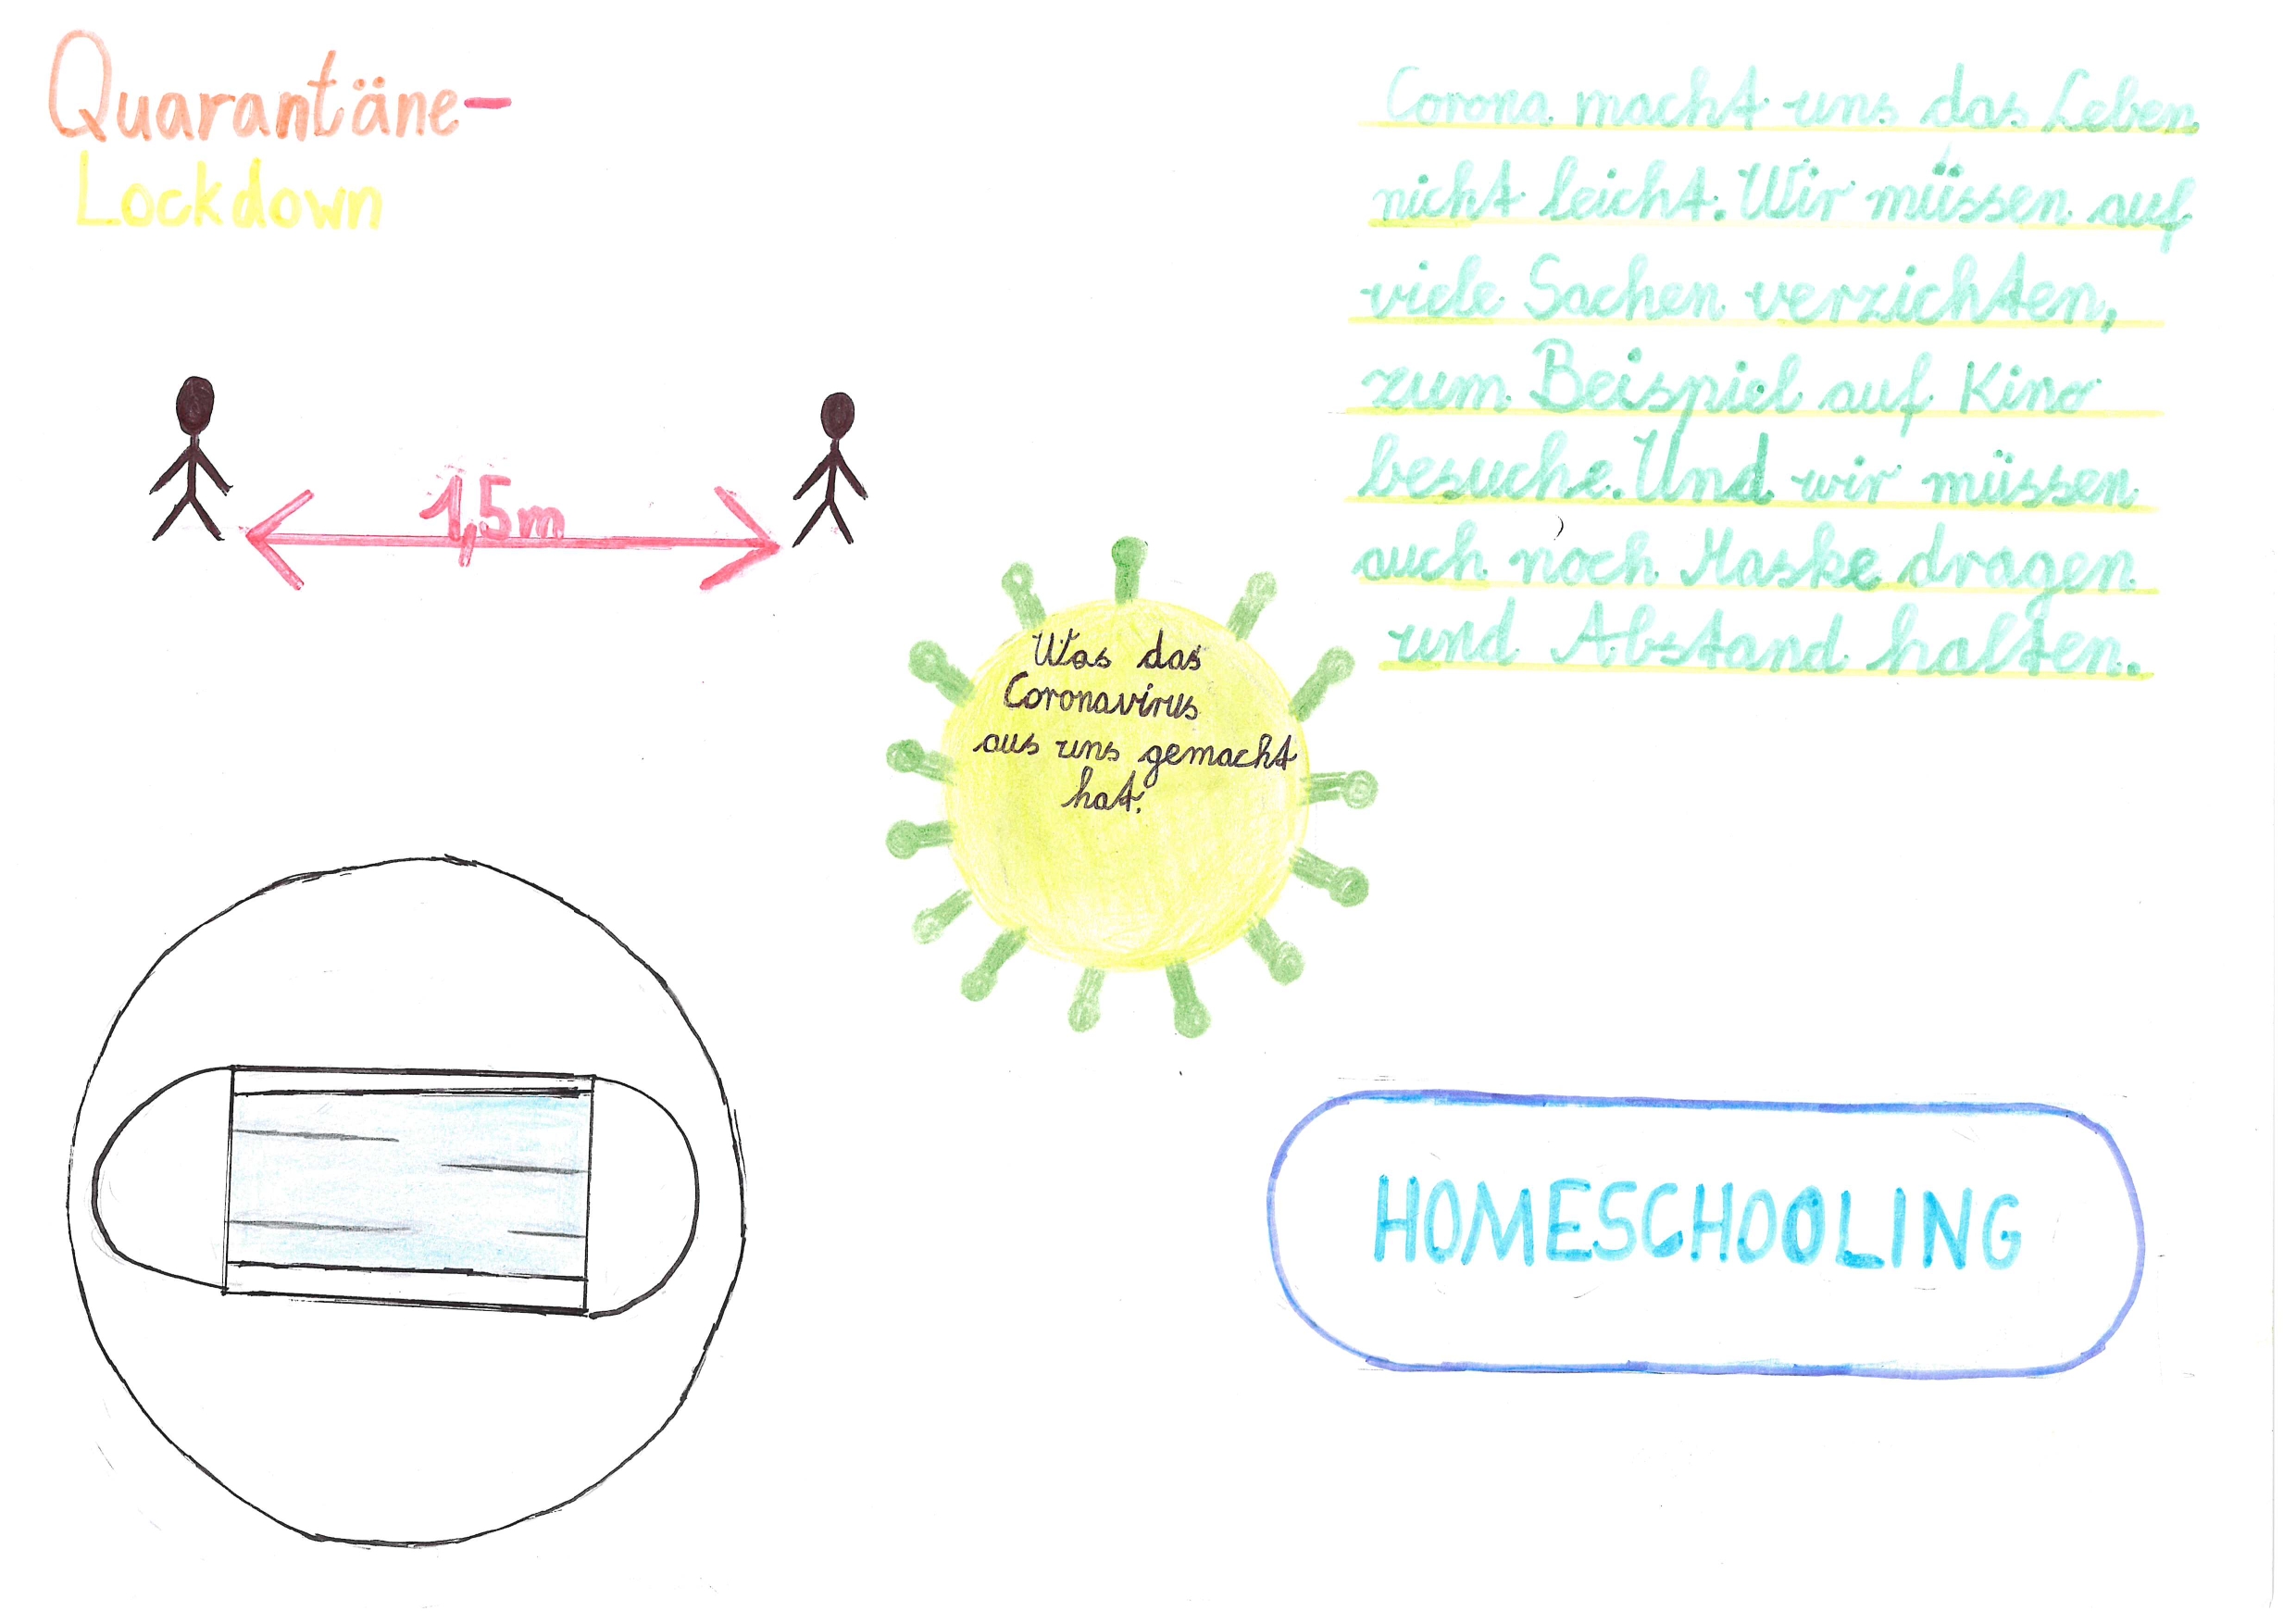 Quarantäne-
Lockdown
1,5m
Corona macht uns das Leben
nicht leicht. Wir müssen auf
viele Sachen verzichten,
zum Beispiel auf Kino
besuche. Und wir müssen
auch noch Maske dragen
und Abstand halten.
Was das
Coronavirus
aus uns gemacht
hat.
HOMESCHOOLING